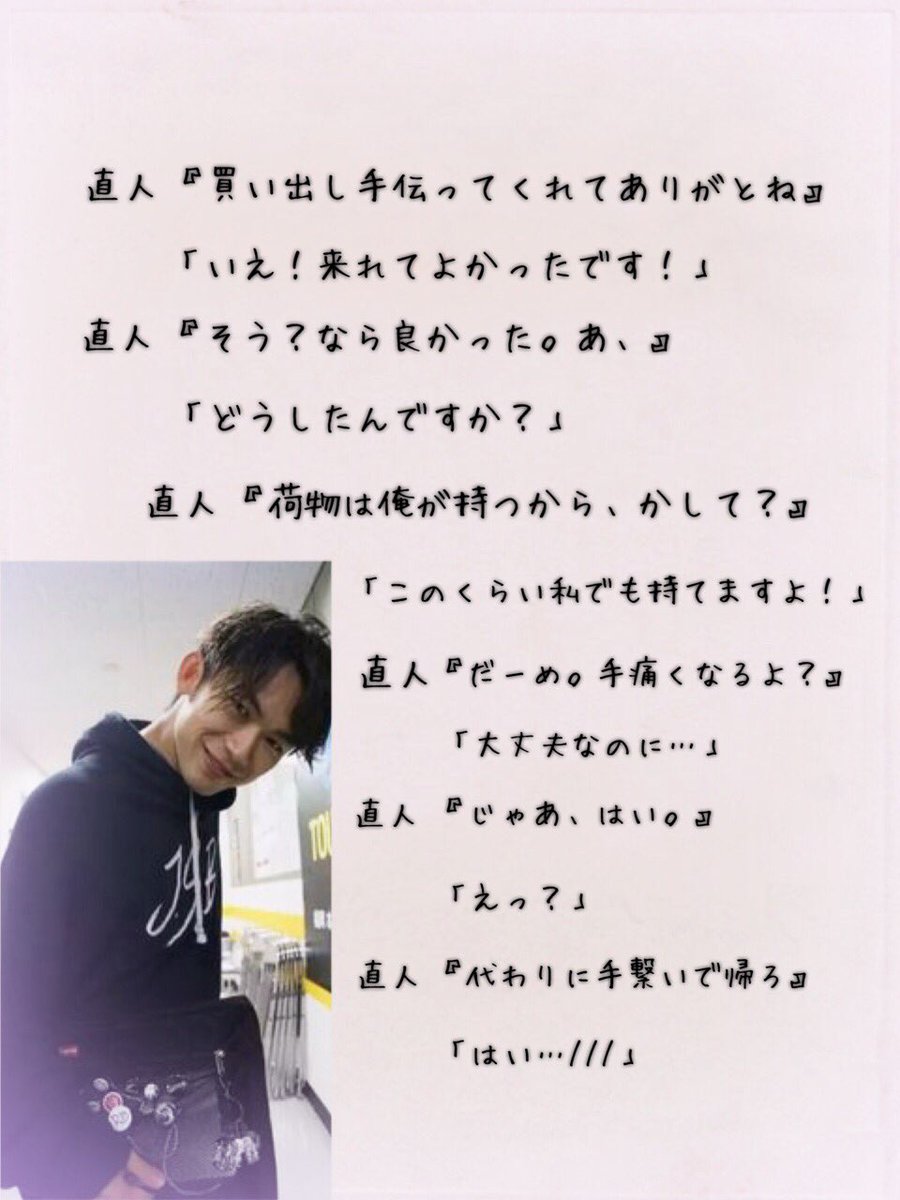 直人『買い出し手伝ってくれてありがとね』
「いえ！来れてよかったです！」
直人『そう？なら良かった。あ、』
「どうしたんですか？」
直人『荷物は俺が持つから、かして？』
「このくらい私でも持てますよ！」
直人『だーめ。手痛くなるよ？』
「大丈夫なのに…」
直人『じゃあ、はい。』
「えっ？」
直人『代わりに手繋いで帰ろ』
「はい…///」